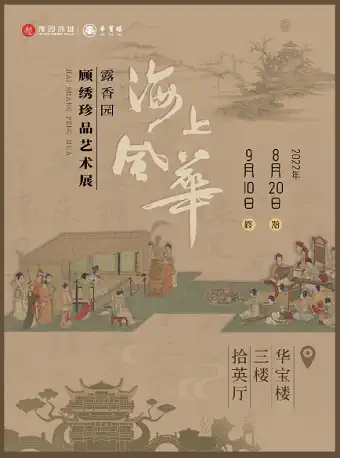 豫园商城
华宝楼
海上风華
露香园
顾绣珍品艺术展
HAI SHANG FENG HUA
2022年
8月20日 始
9月10日 终
华宝楼
三楼
拾英厅